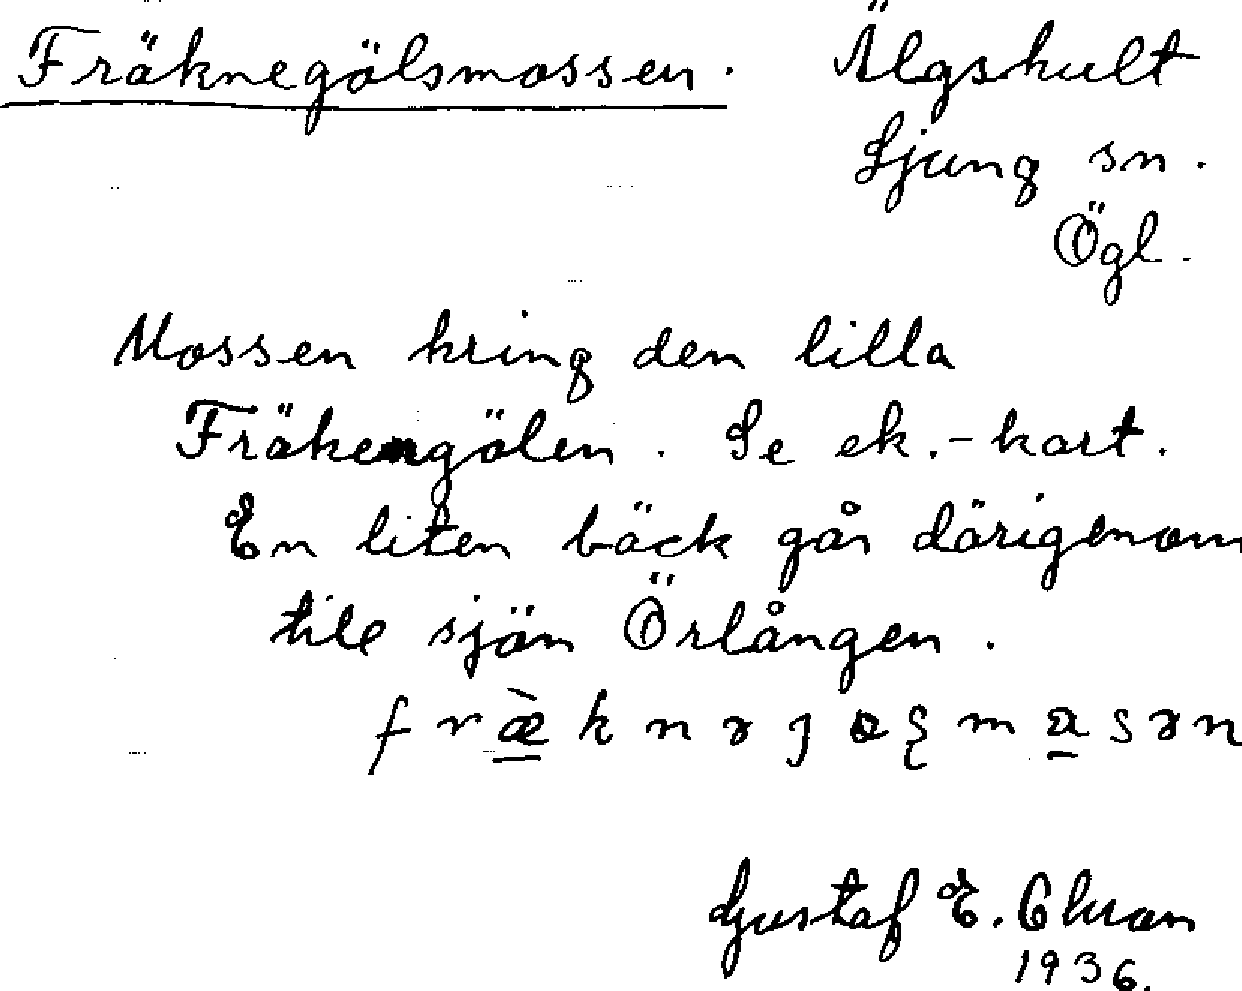 Fräknegölsmossen. Älgshult
Ljung sn.
Ögl.
Mossen kring den lilla
Fräkengölen. Se ek.-kart.
En liten bäck går därigenom
till sjön Örlången.
Gustaf E.
1936.